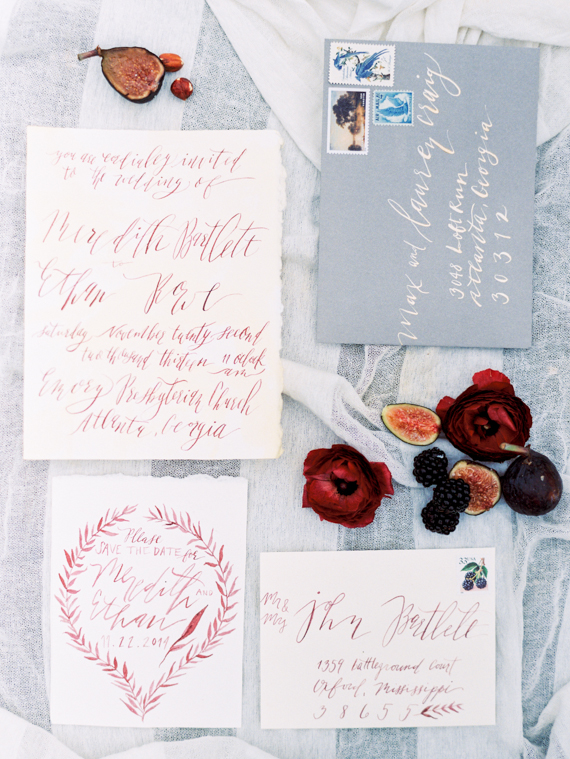 you are cordially invited
to the wedding of
Meredith Bartlett
to
Ethan Rowe
saturday november twenty second
two thousand thirteen 11 o'clock
am
Emory Presbyterian Church
Atlanta, Georgia
Max and Lauren Craig
3048 Loft Run
Atlanta Georgia
30312
Please
SAVE THE DATE for
Meredith AND
Ethan
11.22.2014
Mr &
Mrs John Bartlett
1359 Battleground Court
Oxford, Mississippi
38655
33